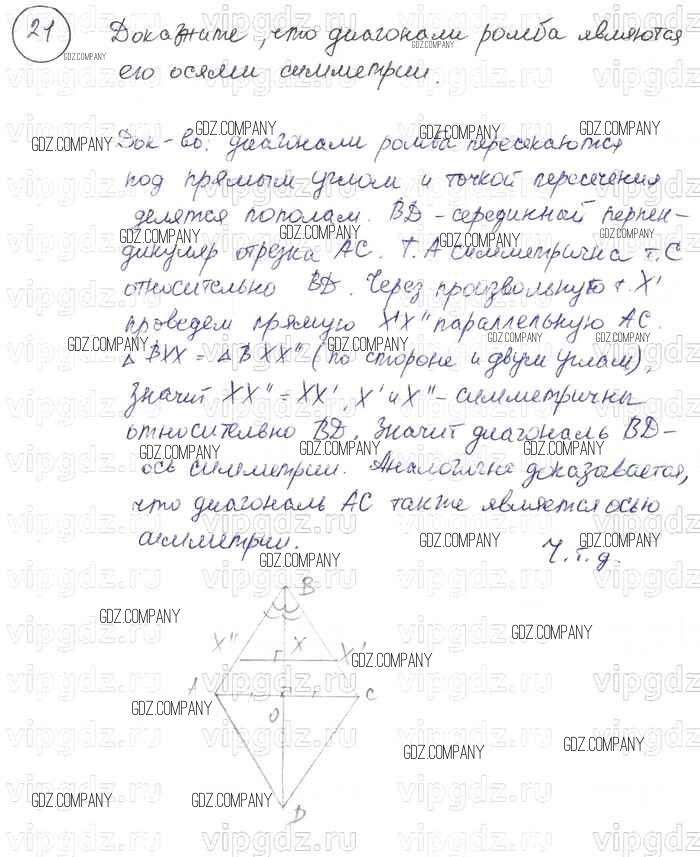 21 Докажите, что диагонали ромба являются
его осями симметрии.
Док-во: диагонали ромба пересекаются
под прямым углом и точкой пересечения
делятся пополам. BD - серединный перпен-
дикуляр отрезка AC. т. A симметрична т. C
относительно BD. Через произвольную т. X'
проведем прямую X'X" параллельную AC.
△ BX'X = △ BXX" (по стороне и двум углам),
значит XX" = XX', X' и X" - симметричны
относительно BD, значит диагональ BD -
ось симметрии. Аналогично доказывается,
что диагональ AC также является осью
симметрии.
Ч.т.д.
B
X" X X'
A C
O
D
GDZ.COMPANY
vipgdz.ru